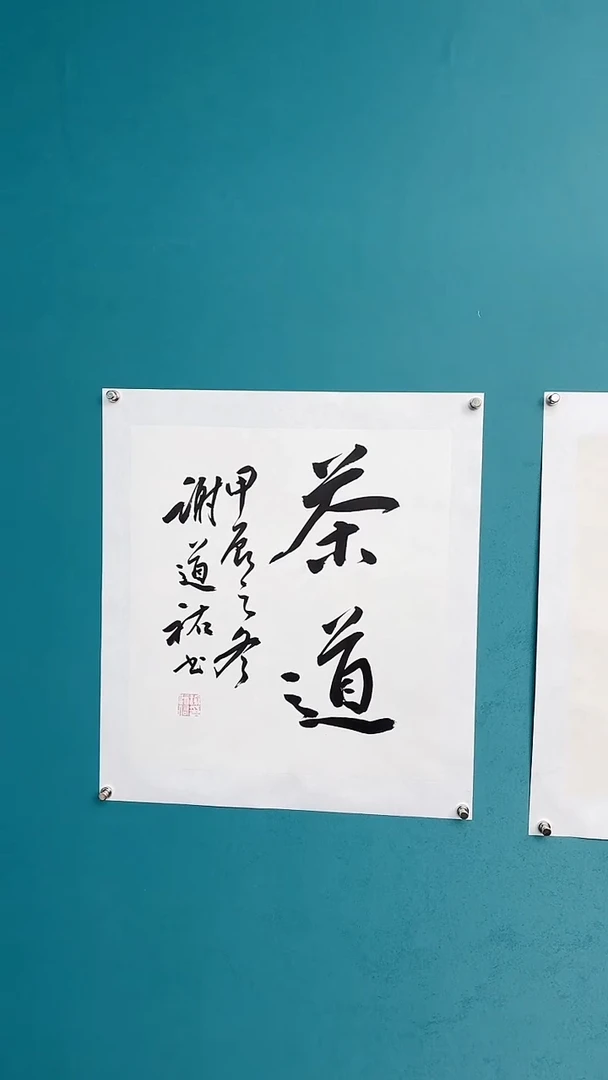 茶道
甲辰之冬
谢道祐书